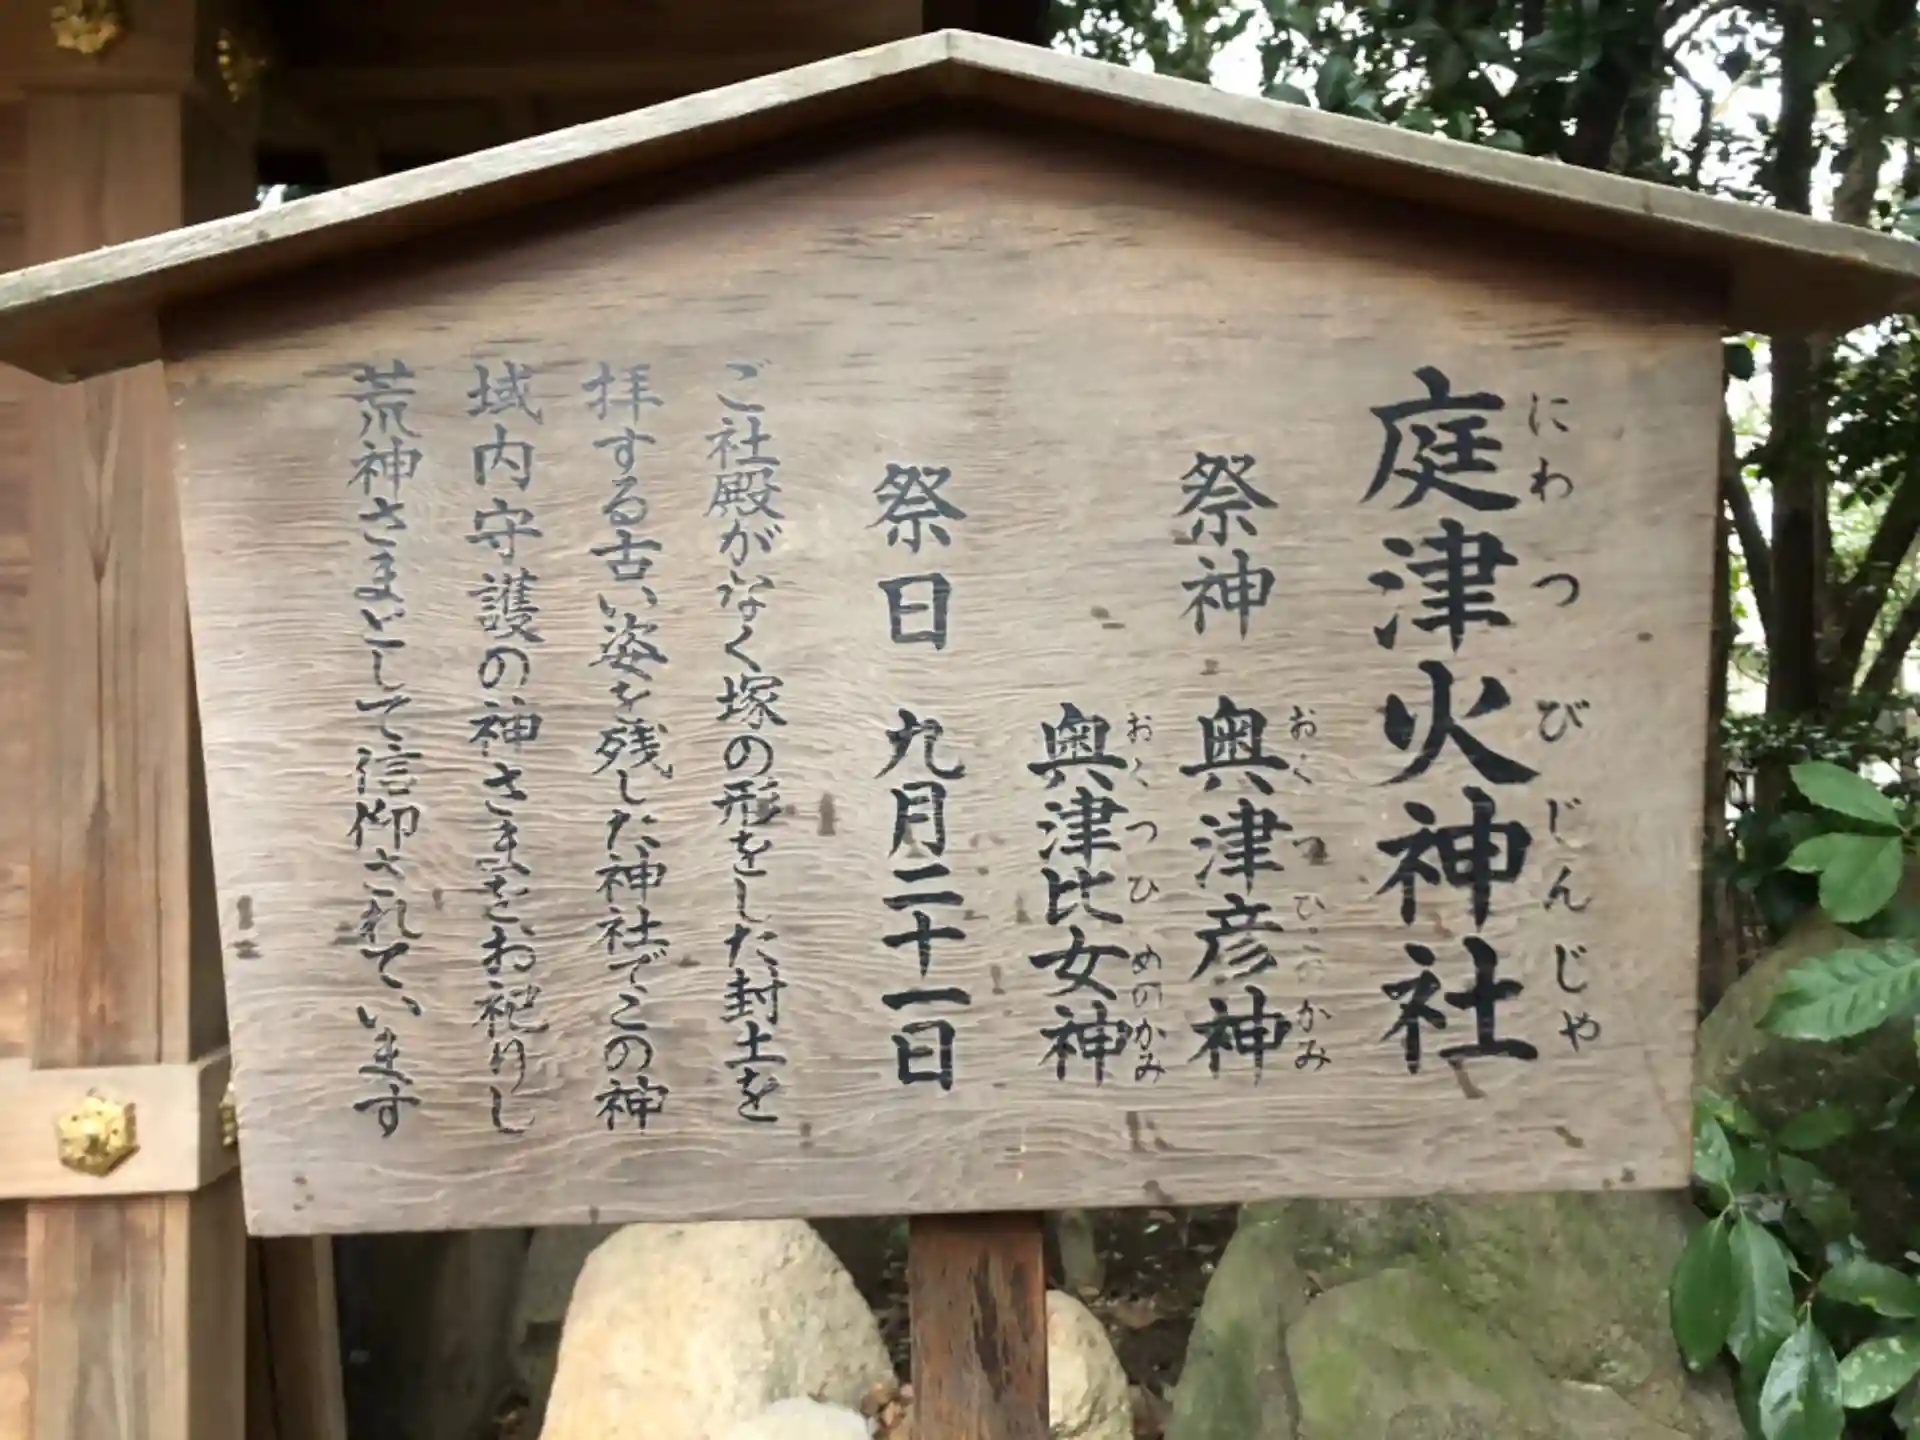 庭津火神社
にわつびじんじゃ
祭神 奥津彦神
おくつひこのかみ
奥津比女神
おくつひめのかみ
祭日 九月二十一日
ご社殿がなく塚の形をした封土を
拝する古い姿を残した神社でこの神
域内守護の神さまをお祀りし
荒神さまとして信仰されています